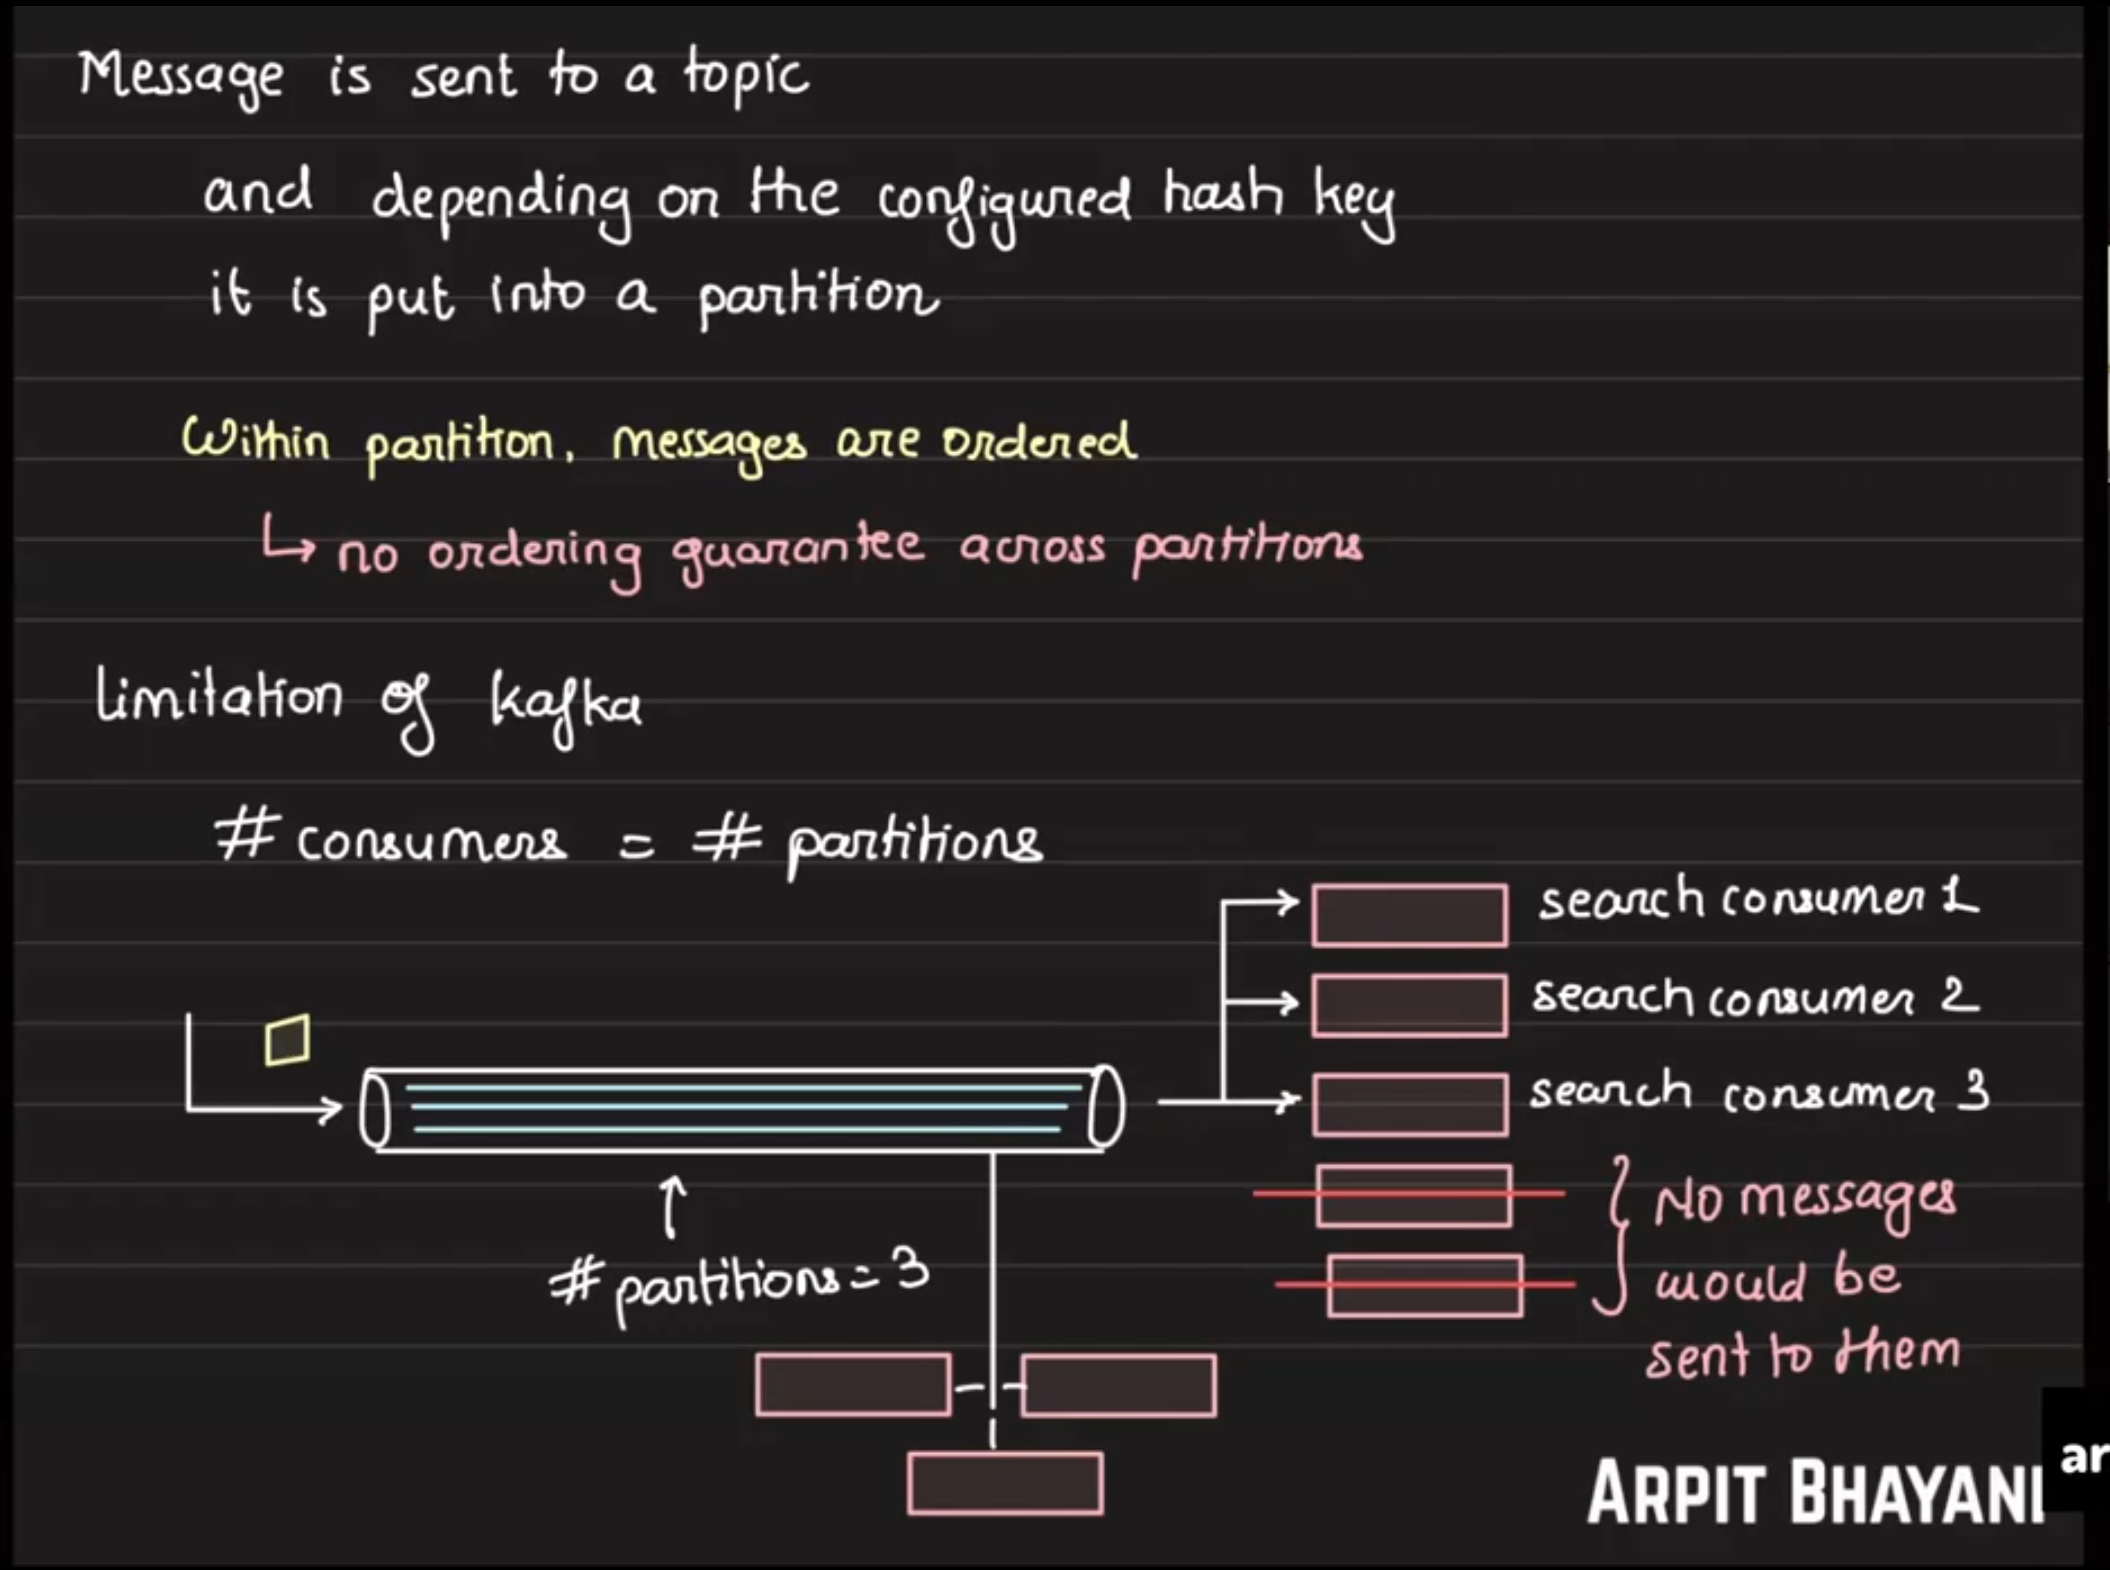 Message is sent to a topic
and depending on the configured hash key
it is put into a partition
Within partition, messages are ordered
↳ no ordering guarantee across partitions
Limitation of kafka
# consumers = # partitions
search consumer 1
search consumer 2
search consumer 3
No messages
would be
sent to them
# partitions = 3
ARPIT BHAYANI
ar